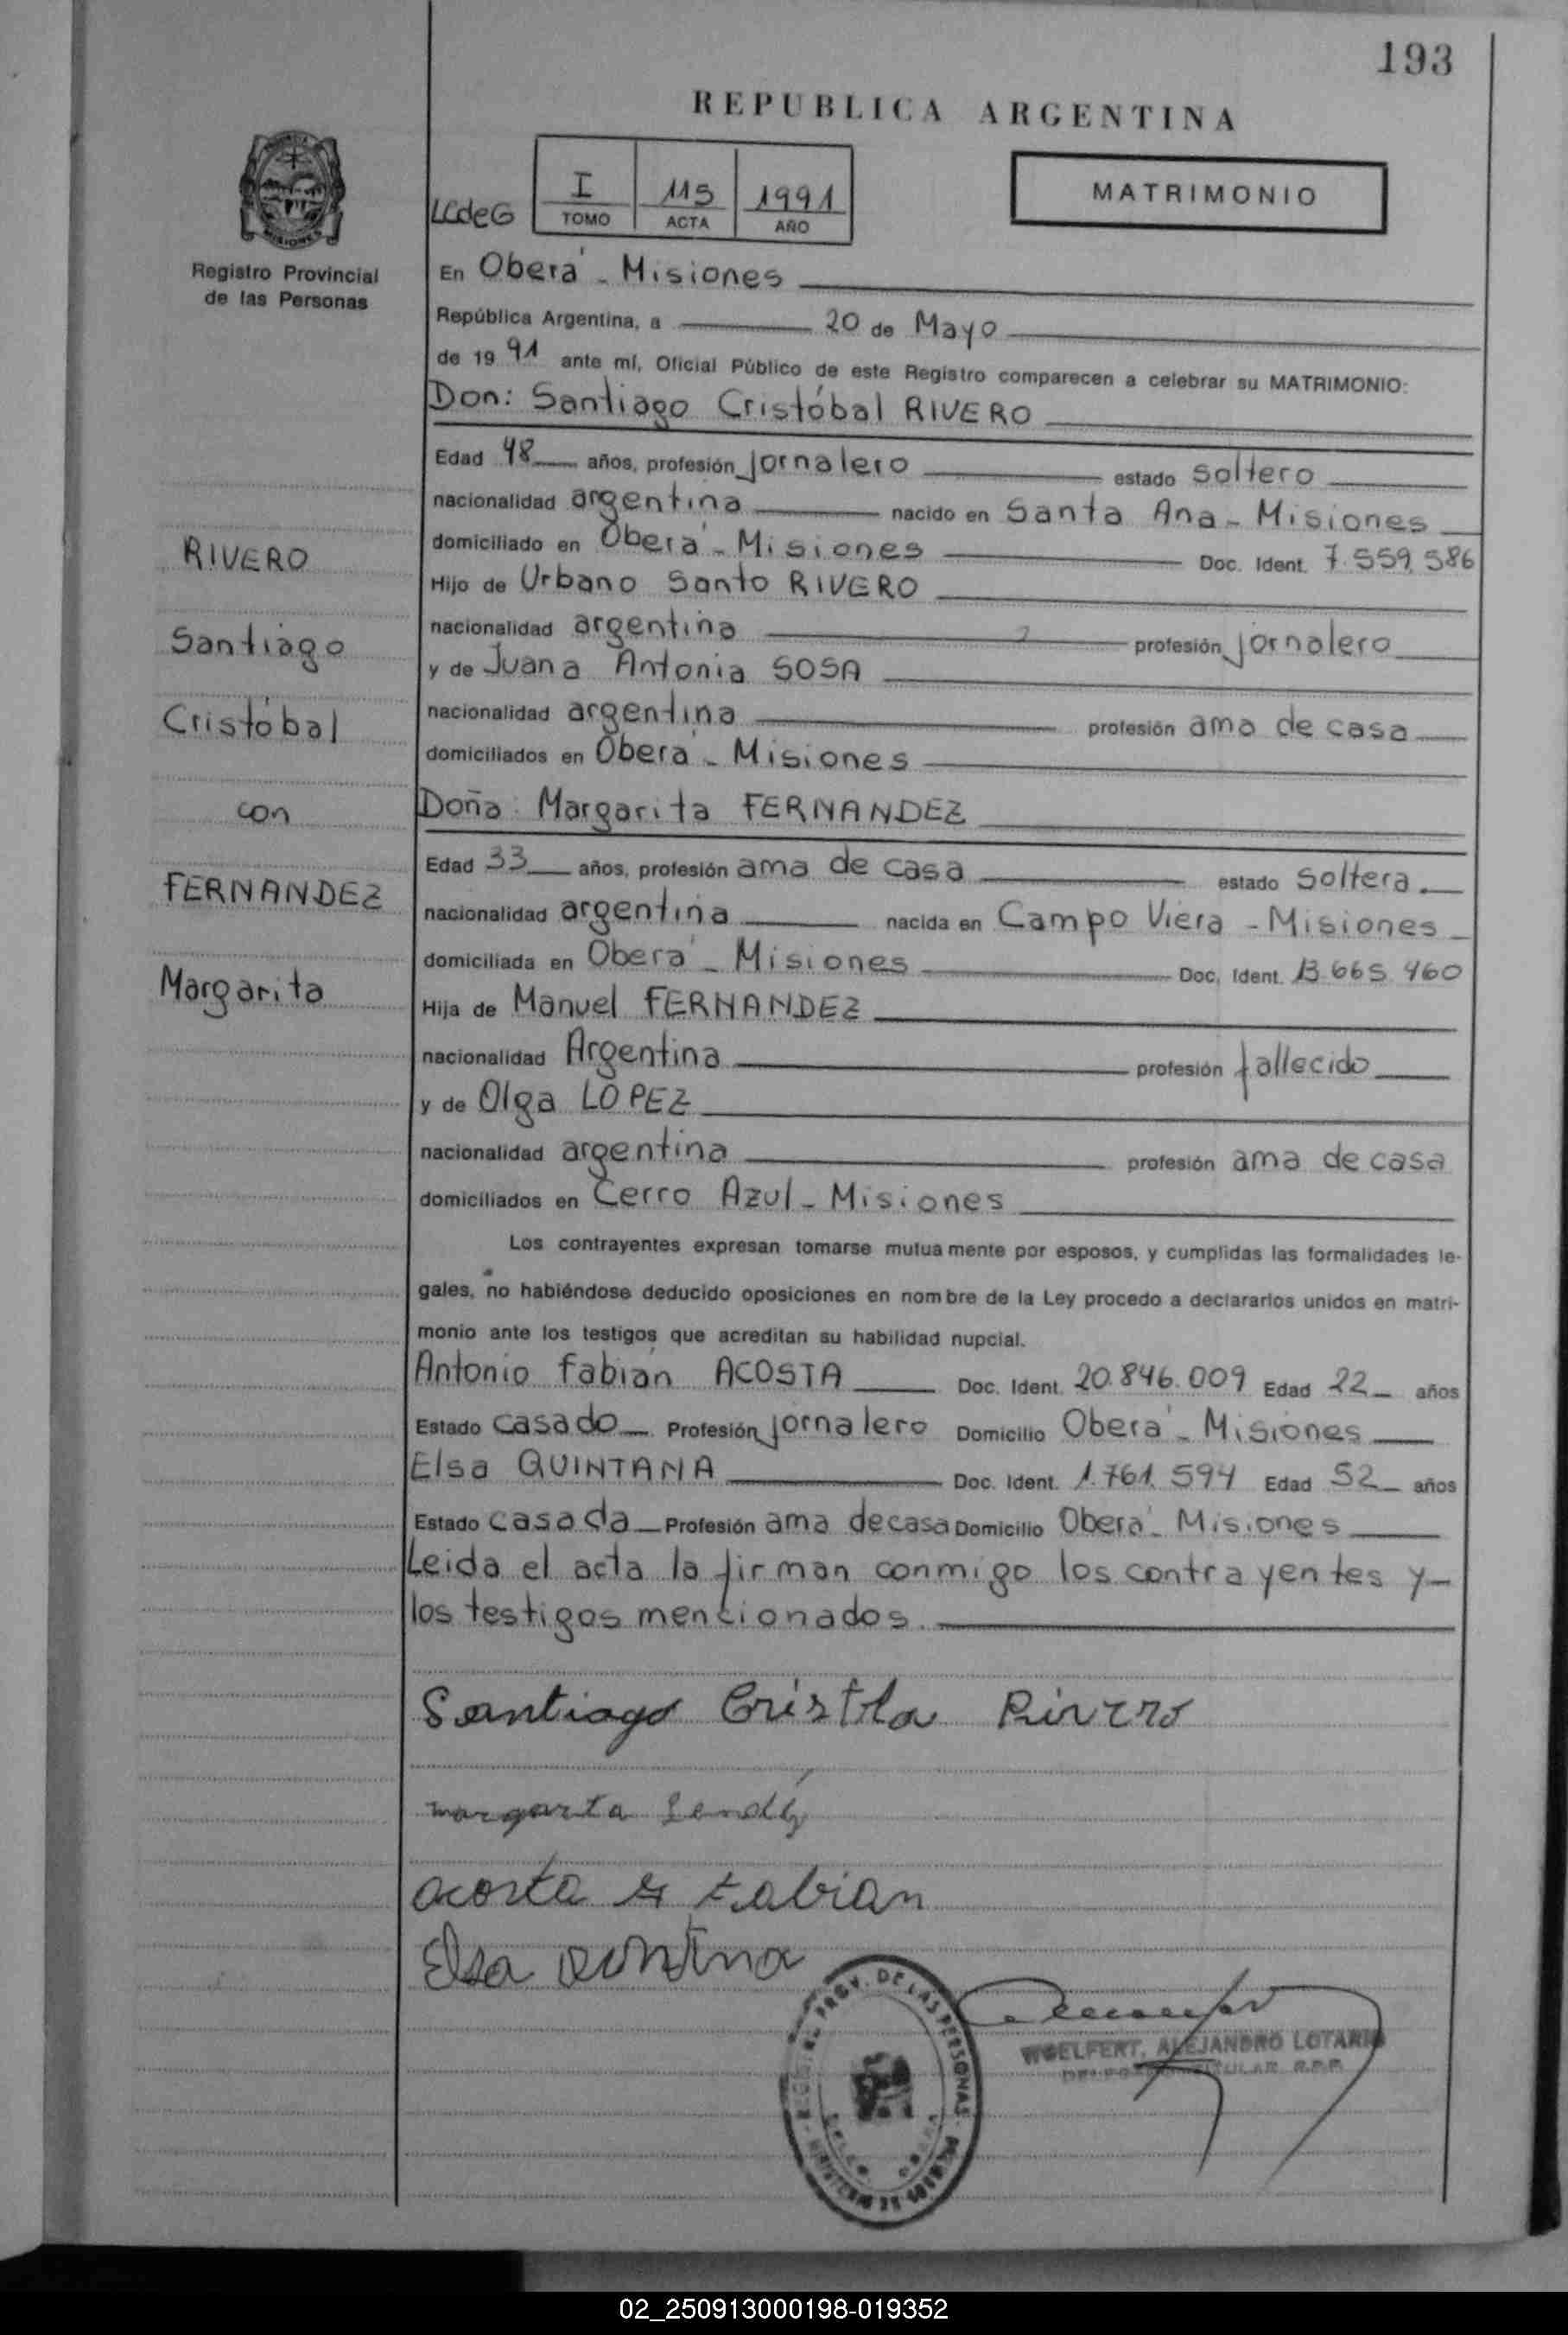 193
REPUBLICA ARGENTINA
I 115 1991
LCdeG TOMO ACTA AÑO
MATRIMONIO
Registro Provincial
de las Personas
En Oberá - Misiones
República Argentina, a 20 de Mayo
de 19 91 ante mí, Oficial Público de este Registro comparecen a celebrar su MATRIMONIO:
Don: Santiago Cristóbal RIVERO
Edad 48 años, profesión jornalero estado soltero
nacionalidad argentina nacido en Santa Ana - Misiones
domiciliado en Oberá - Misiones Doc. Ident. 7.559.586
Hijo de Urbano Santo RIVERO
nacionalidad argentina profesión jornalero
y de Juana Antonia SOSA
nacionalidad argentina profesión ama de casa
domiciliados en Oberá - Misiones
Doña: Margarita FERNANDEZ
Edad 33 años, profesión ama de casa estado soltera
nacionalidad argentina nacida en Campo Viera - Misiones
domiciliada en Oberá - Misiones Doc. Ident. 13.665.460
Hija de Manuel FERNANDEZ
nacionalidad Argentina profesión fallecido
y de Olga LOPEZ
nacionalidad argentina profesión ama de casa
domiciliados en Cerro Azul - Misiones
Los contrayentes expresan tomarse mutuamente por esposos, y cumplidas las formalidades le-
gales, no habiéndose deducido oposiciones en nombre de la Ley procedo a declararlos unidos en matri-
monio ante los testigos que acreditan su habilidad nupcial.
Antonio Fabián ACOSTA Doc. Ident. 20.846.009 Edad 22 años
Estado casado Profesión jornalero Domicilio Oberá - Misiones
Elsa QUINTANA Doc. Ident. 1.761.594 Edad 52 años
Estado casada Profesión ama de casa Domicilio Oberá - Misiones
Leida el acta la firman conmigo los contrayentes y
los testigos mencionados.
RIVERO
Santiago
Cristóbal
con
FERNANDEZ
Margarita
Santiago Cristla Rivero
margarta
acosta Fabian
Elsa
WOELFERT, ALEJANDRO LOTARIO
TITULAR R.P.P.
PROV. DE LAS PERSONAS
02_250913000198-019352